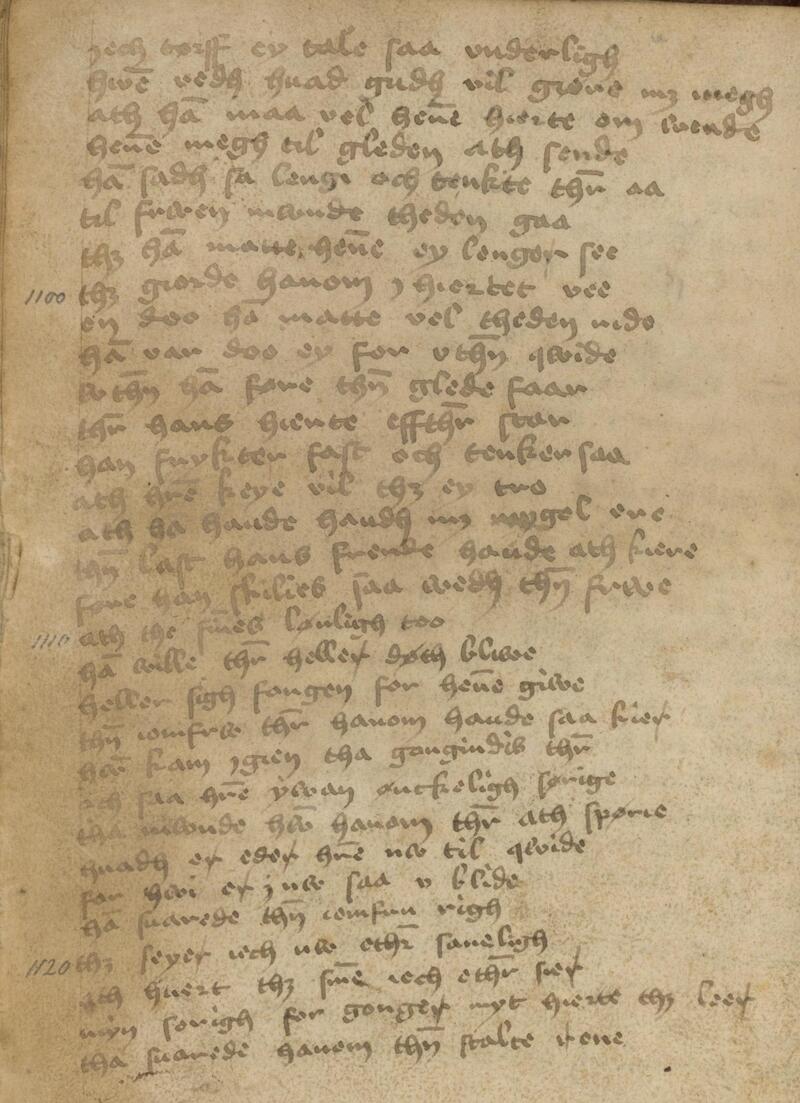 jech tørff ey tale saa vnderligh
hwē vedh huad gudh vil giøre mz megh
ath hā maa vel hēne hierte om wende
hēne megh til gleden ath sende
hā sadh sa lengi och tenkte thr̄ aa
til frwen mwnde theden gaa
thz hā matte hēne ey lenger see
1100 thz giorde hanom j hiertet vee
en doo hā matte vel theden ride
hā var doo ey for vthn̄ qwide
wthn̄ hā fore thn̄ glede faar
thr̄ hans hierte effthr̄ staar
han frykter fast och tenker saa
ath hr̄e keye vil thz ey tro
ath hā hande haudh
thn̄ last hans frende hande ath kiere
føre han skilies saa wedh thn̄ frwe
1110 ath the lønligh too
hā wille thr̄ heller døth bliwe
heller sigh fangen for hēne giwe
thn̄ iomfrw thr̄ hanom hande saa kier
hw̄ kam jgien tha gangindis thr̄
och saa hr̄e ywan ønckeligh sørige
tha mwnde hw̄ hanom thr̄ ath spørie
huadh er eder hr̄e nw til qwide
for hwi er j nw saa v blide
hā suarede thn̄ iomfru righ
1120 thz seyer iech nw ethr̄ saneligh
ath huert thz sīne iech ethr̄ seer
myn sørigh for ganger myt hierte thz leer
tha suarede hanom thn̄ stalte rene